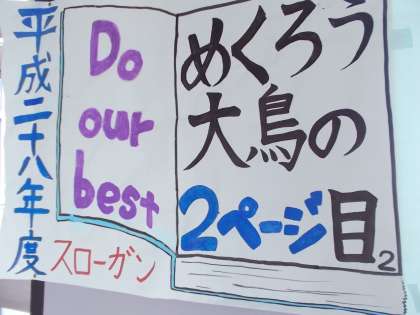 平成二十八年度
スローガン
Do
our
best
めくろう
大鳥の
2ページ目
2